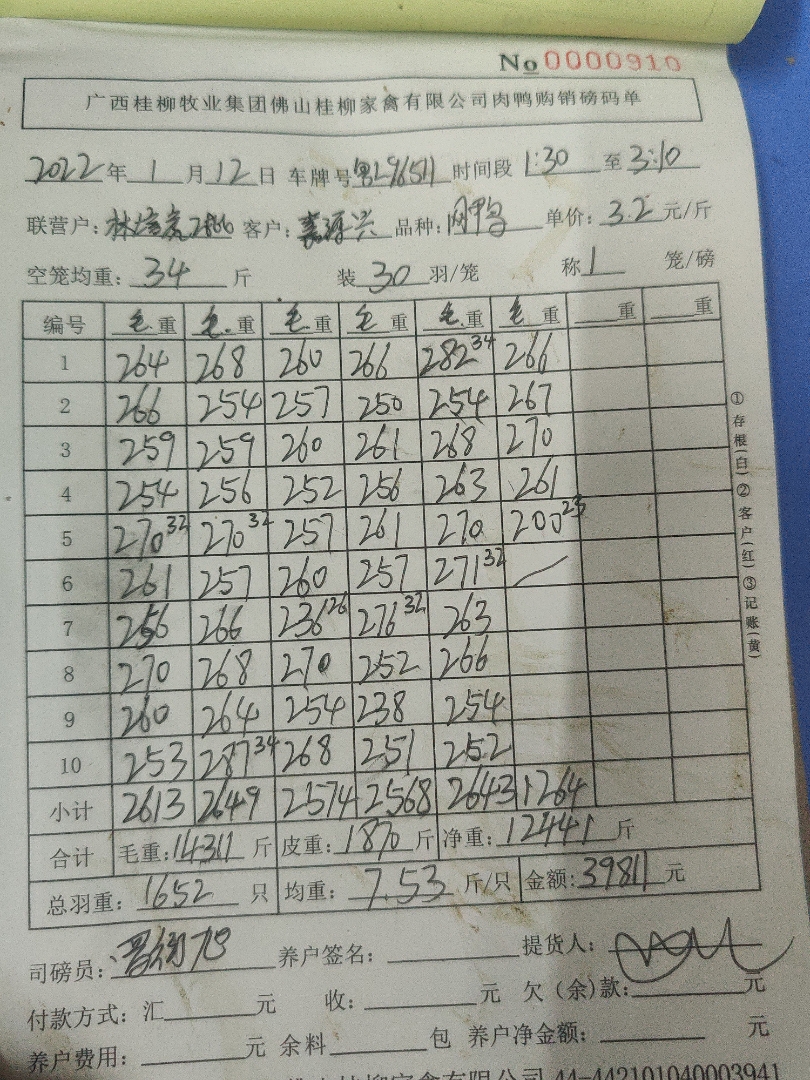 No 0000910
广西桂柳牧业集团佛山桂柳家禽有限公司肉鸭购销磅码单
2022年 1 月 12 日 车牌号 96511 时间段 1:30 至 3:10
联营户: 客户: 品种: 单价: 3.2 元/斤
空笼均重: 34 斤 装 30 羽/笼 称 1 笼/磅
编号 毛.重 毛.重 毛.重 毛 重 毛.重 毛 重 重 重
1 264 268 260 266 282 34 266
2 266 254 257 250 254 267
3 259 259 260 261 268 270
4 254 256 252 256 263 261
5 270 32 270 32 257 261 270 200 23
6 261 257 260 257 271 32
7 256 266 236 26 276 32 263
8 270 268 270 252 266
9 260 264 254 238 254
10 253 287 34 268 251 252
小计 2613 2649 2574 2568 2643 1264
合计 毛重: 14311 斤 皮重: 1870 斤 净重: 12441 斤
总羽重: 1652 只 均重: 7.53 斤/只 金额: 39811 元
司磅员: 养户签名: 提货人:
付款方式: 汇 元 收: 元 欠(余)款: 元
养户费用: 元 余料 包 养户净金额: 元
桂柳家禽有限公司 44-442101040003941
①存根(白)②客户(红)③记账(黄)